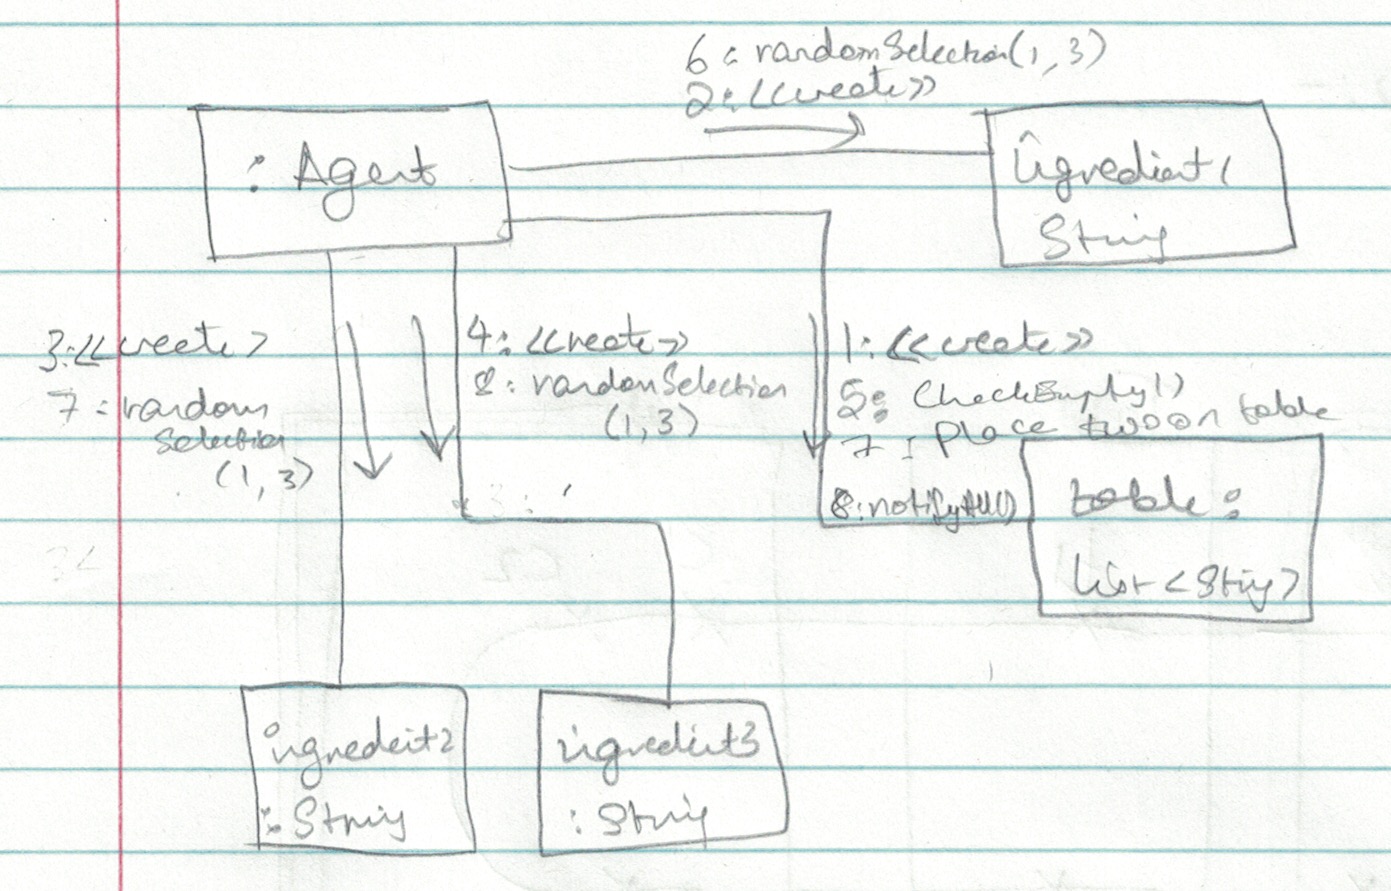 6: randomSelection(1, 3)
2: <<create>>
: Agent
ingredient1
String
3:<<create>
7: random
Selection
(1, 3)
4: <<create>>
8: randomSelection
(1, 3)
1: <<create>>
5: CheckEmpty()
7: place two on table
8:notifyAll()
table:
list<String>
ingredeit2
: String
ingredient3
: String